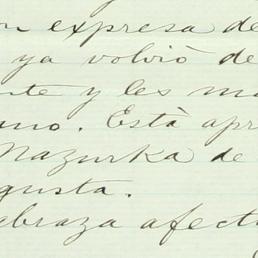 on expresa de
ya volvió de
nte y les ma
uno. Està apr
Mazurka de
gusta.
abraza afect